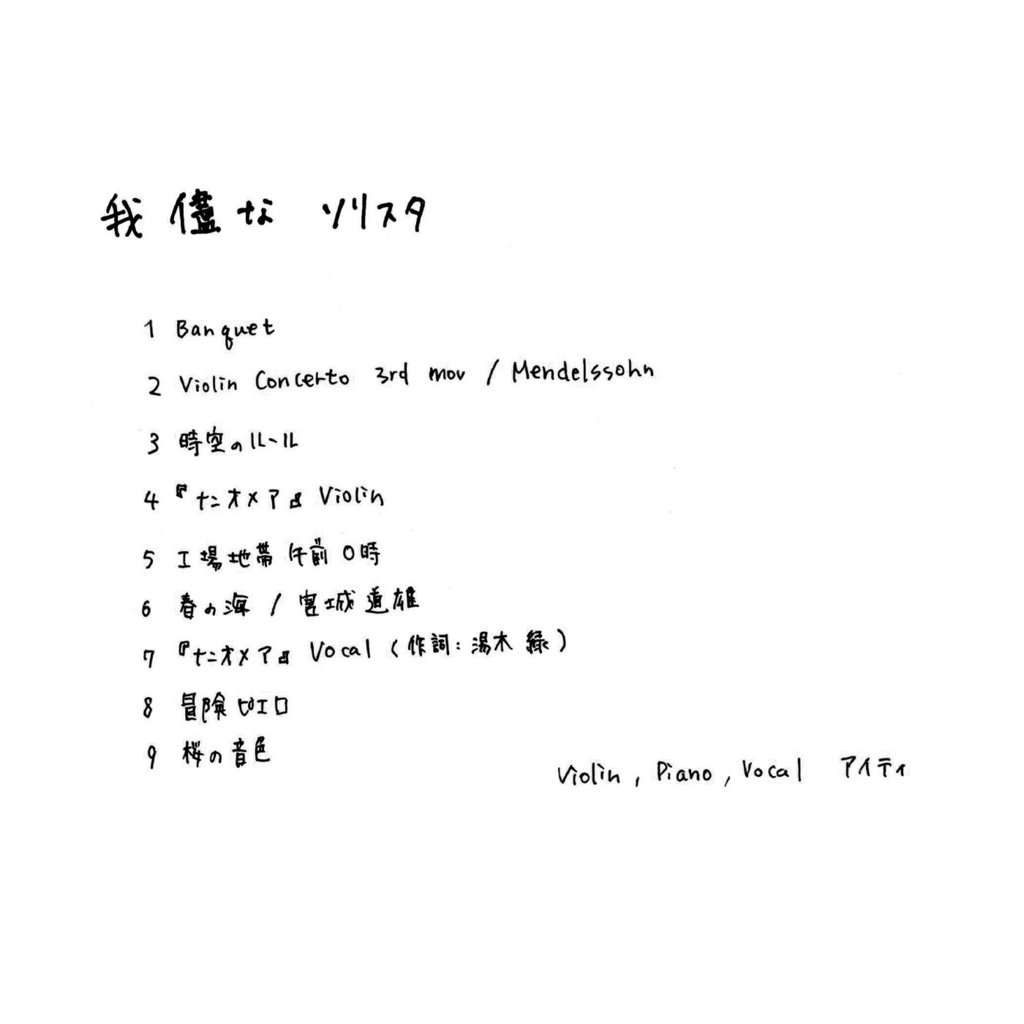 我儘な ソリスタ
1 Banquet
2 Violin Concerto 3rd mov / Mendelssohn
3 時空のルール
4 『ナニオメア』 Violin
5 工場地帯 午前0時
6 春の海 / 宮城道雄
7 『ナニオメア』 Vocal (作詞:湯木 緑)
8 冒険ピエロ
9 桜の音色
Violin, Piano, Vocal アイティ